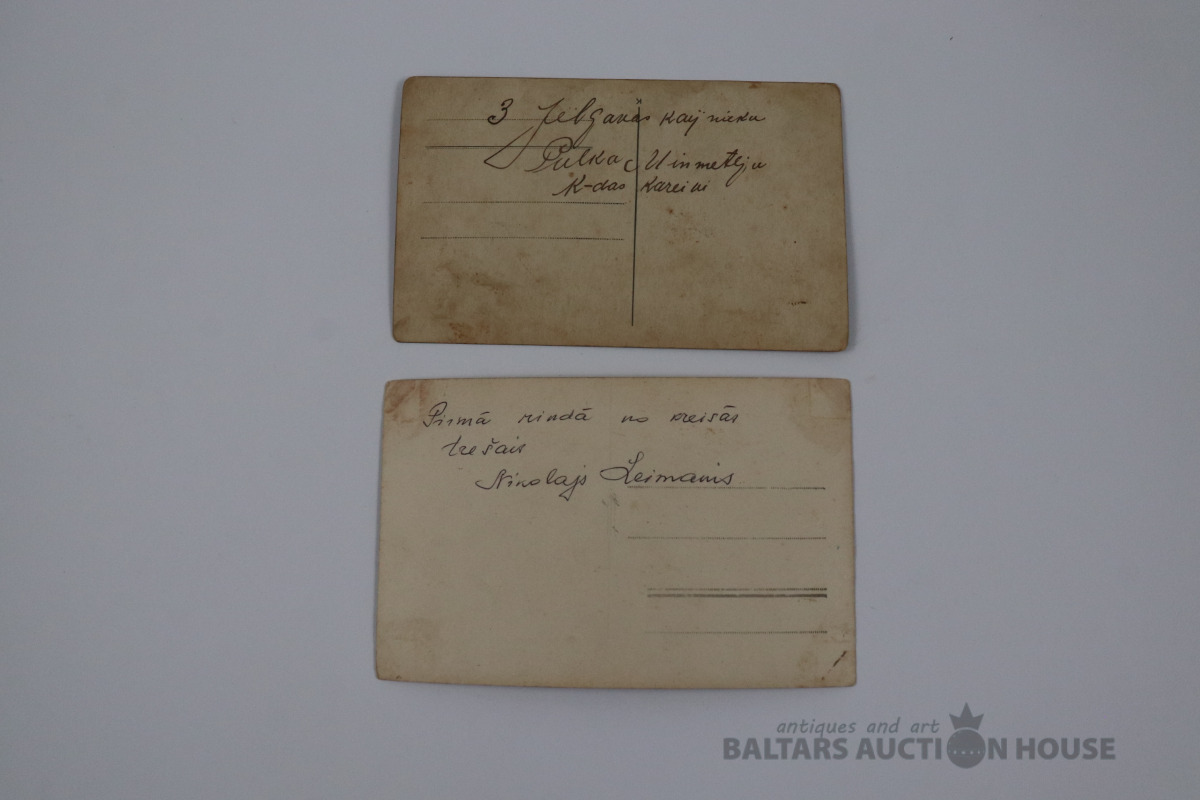 3 Jelgavas kājnieku
Pulka Minmetēju
K-das kareivi
Pirmā rindā no kreisās
trešais
Nikolajs Leimanis
antiques and art
BALTARS AUCTION HOUSE